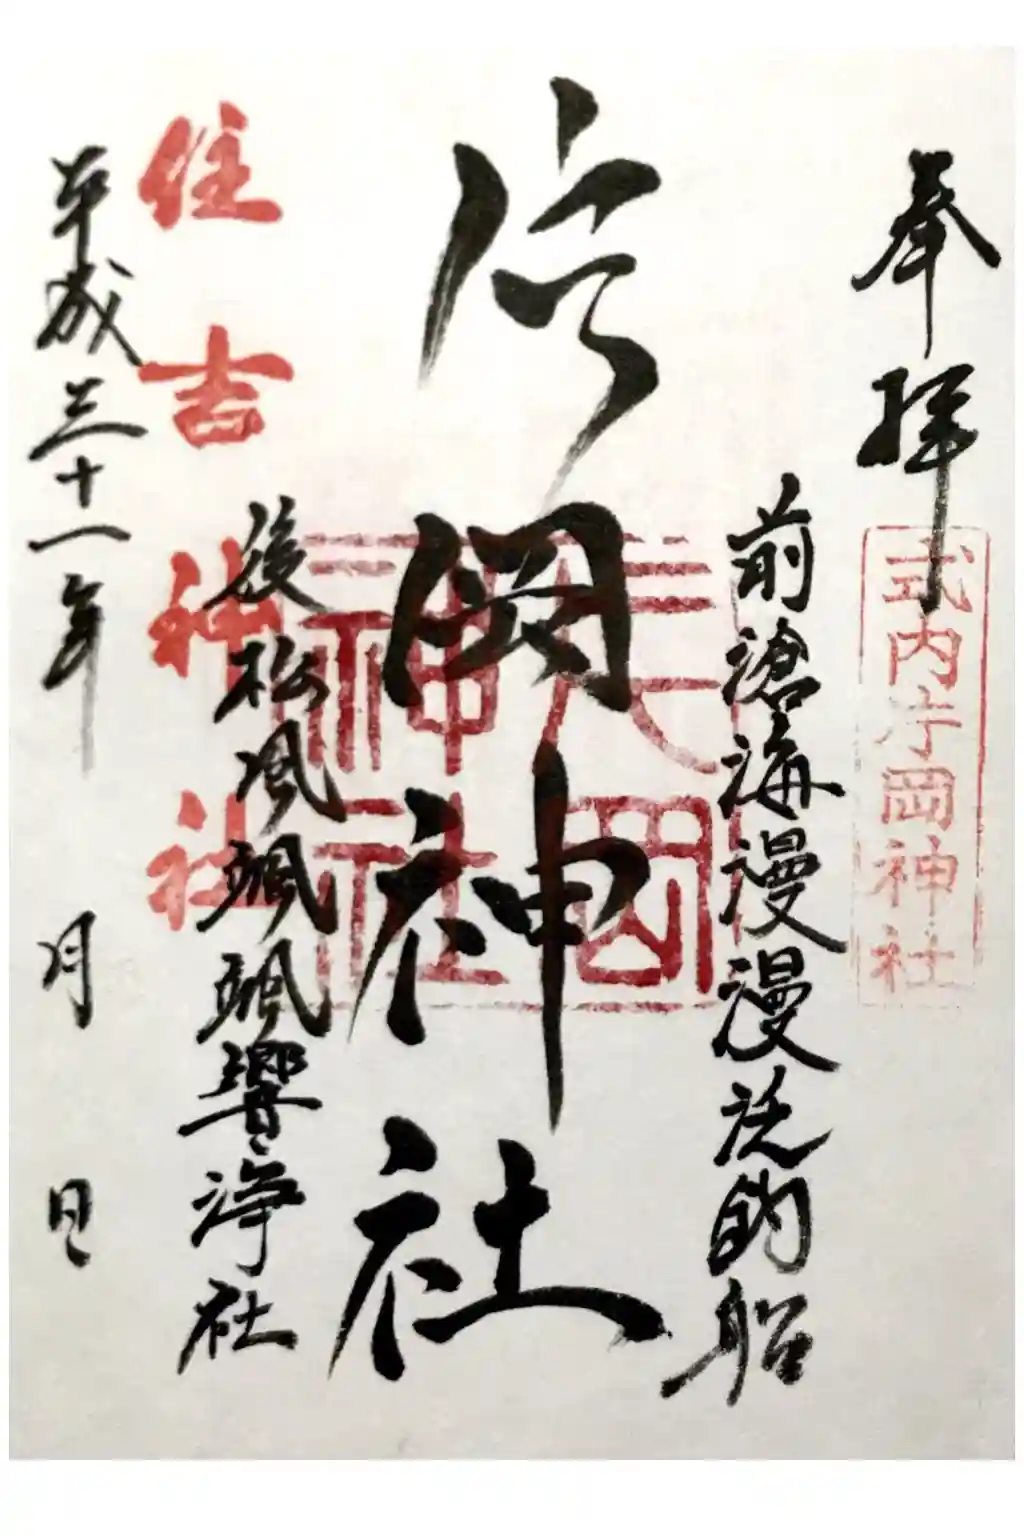 奉拝
式内片岡神社
前滄海漫漫泛釣船
片岡神社
後松風颯颯響浄社
住吉神社
平成三十一年 月 日